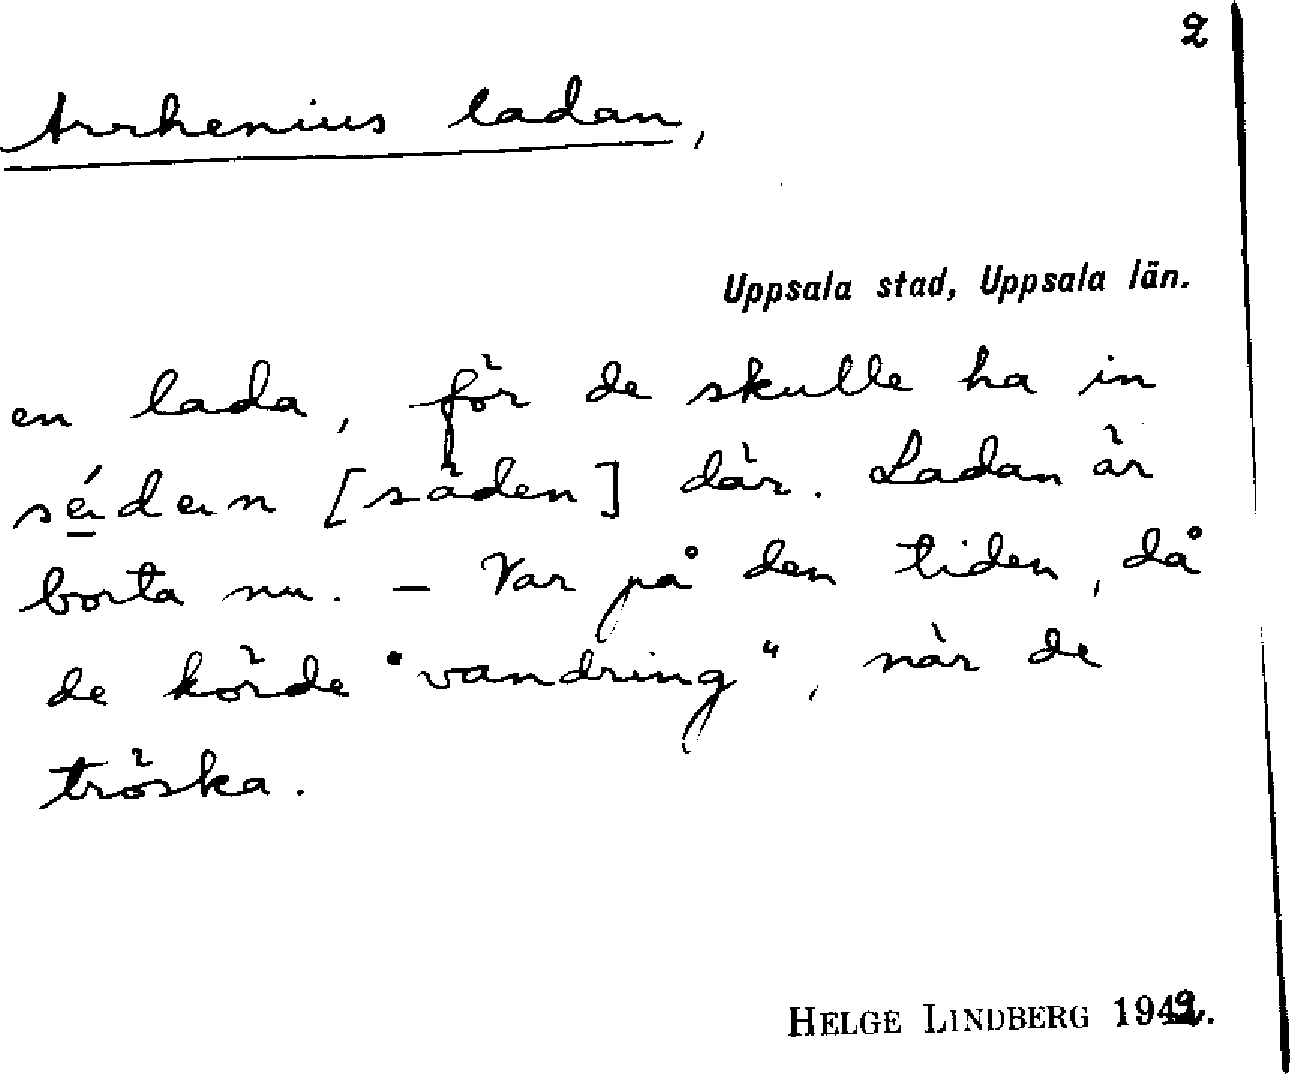 2
Arrhenius ladan,
Uppsala stad, Uppsala län.
en lada, för de skulle ha in
[säden] där. Ladan är
borta nu. – Var på den tiden, då
de körde "vandring", när de
tröska.
HELGE LINDBERG 1942.